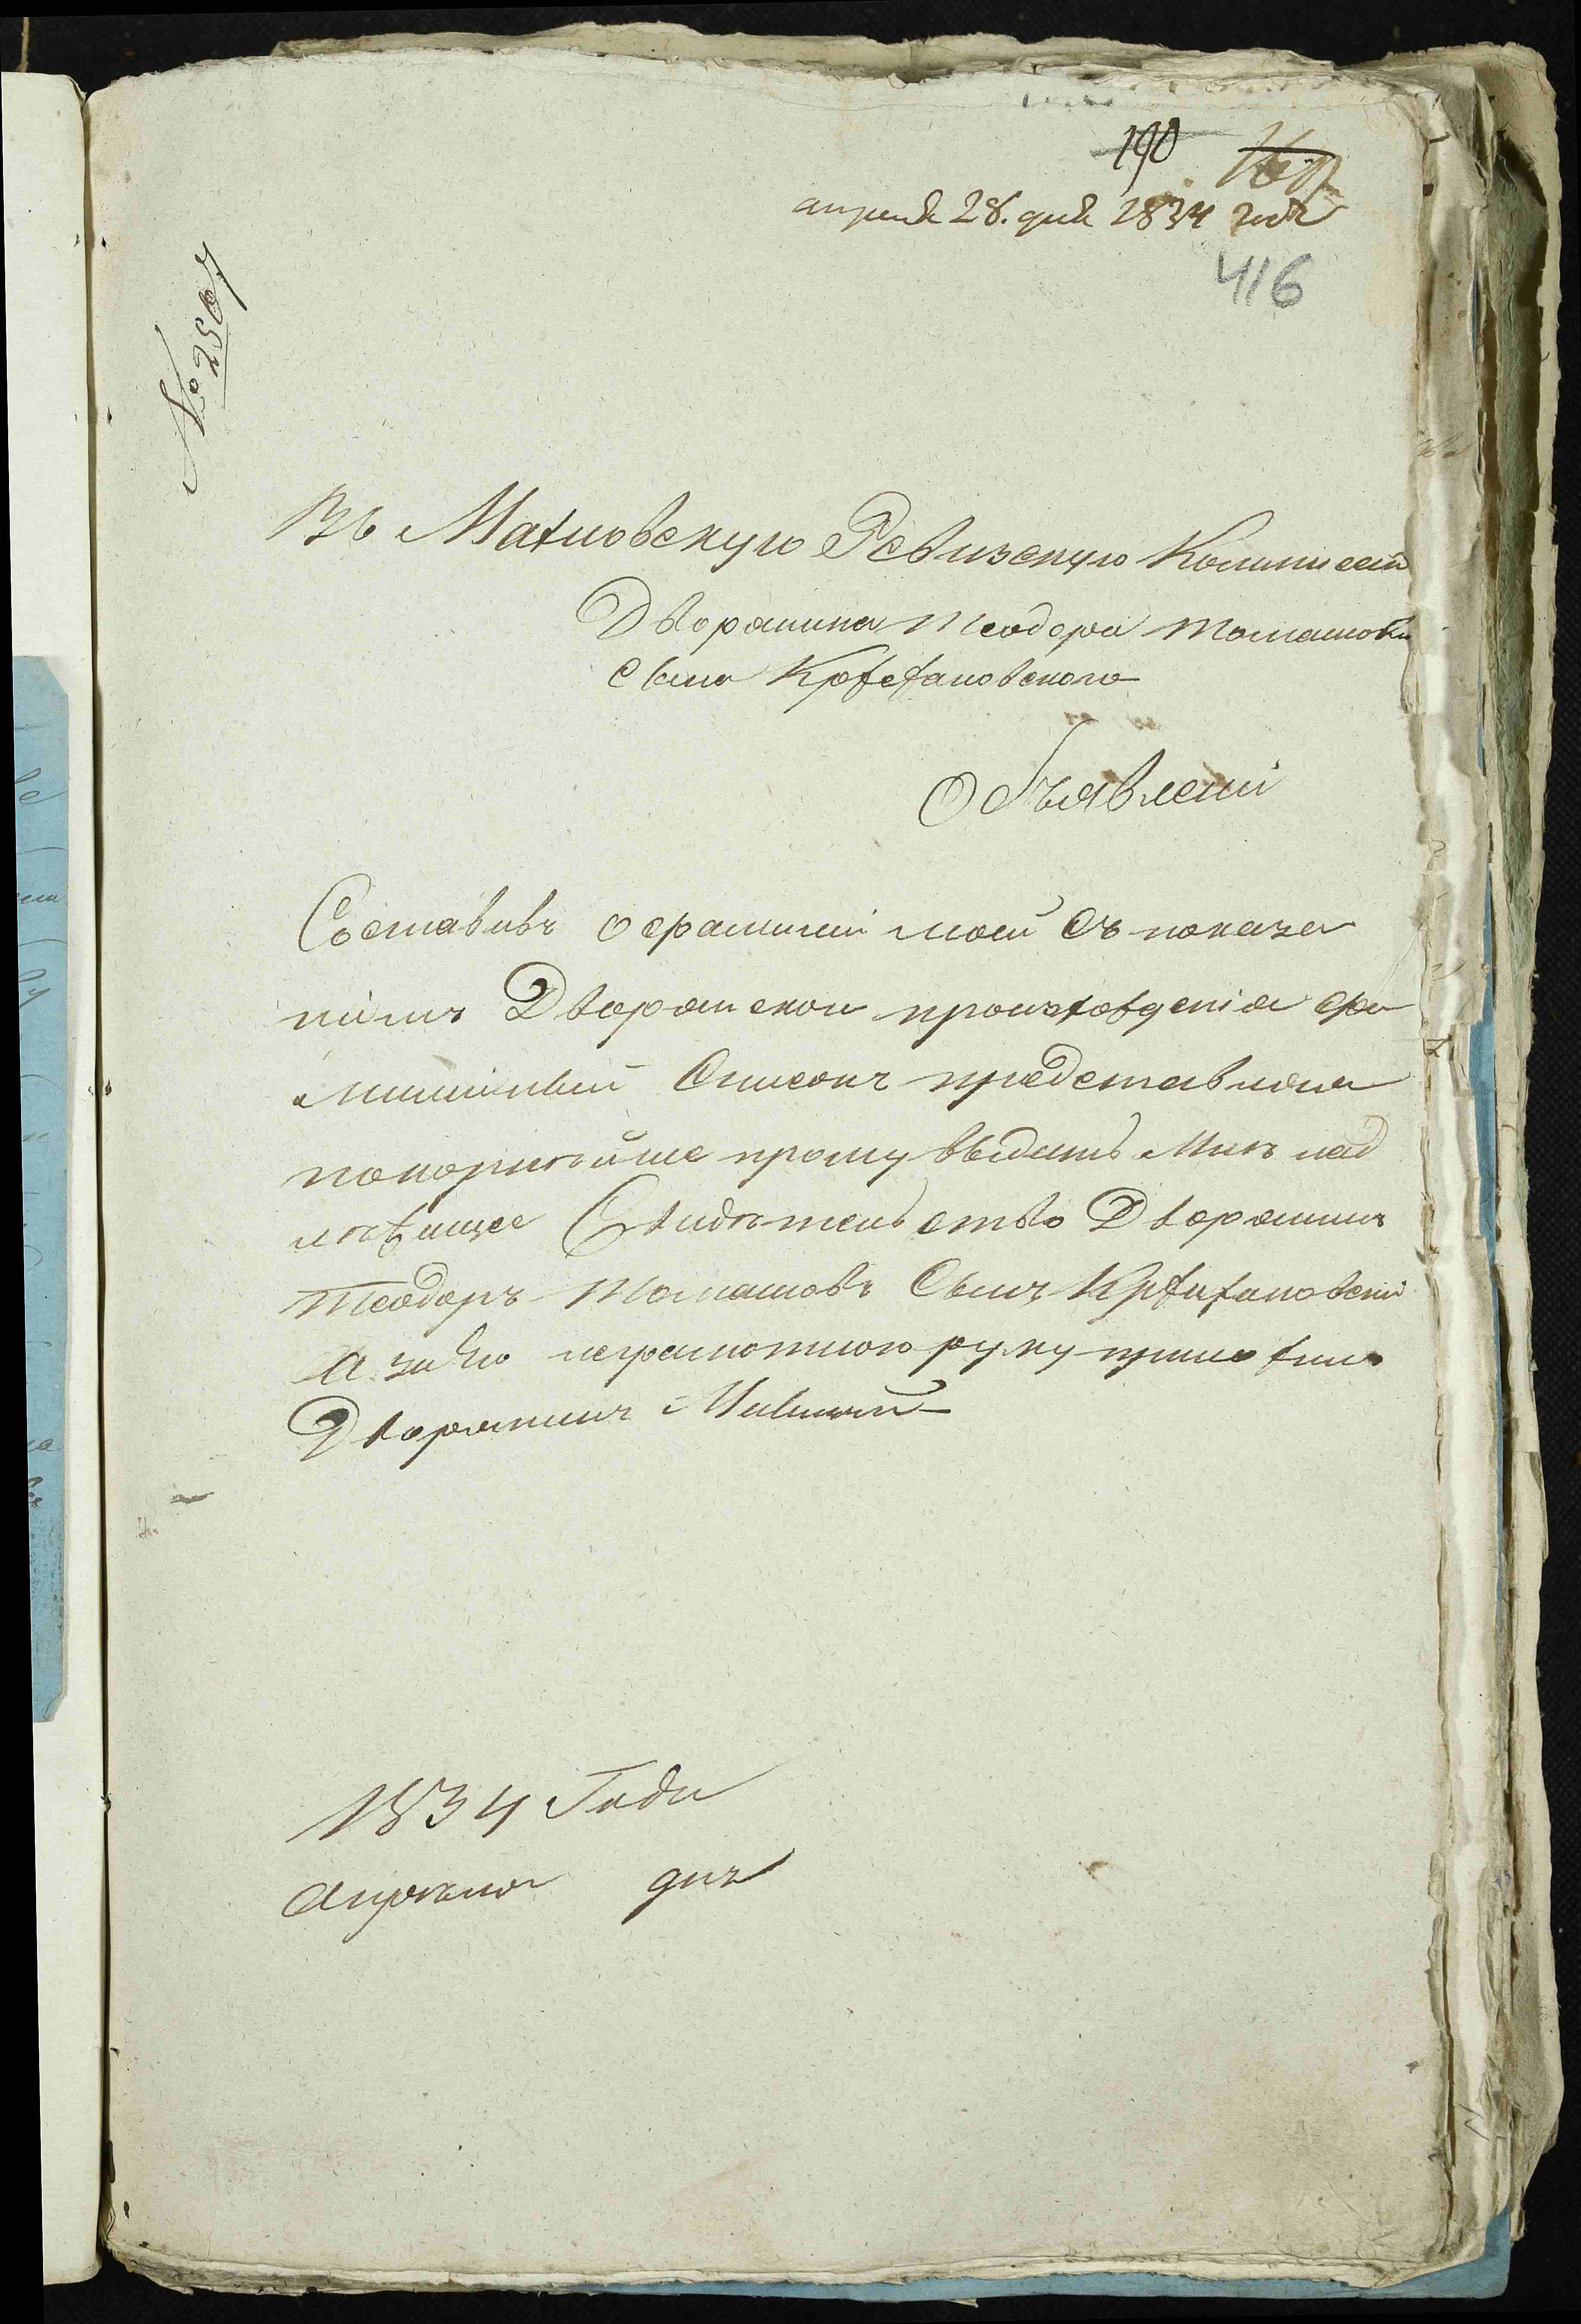 190
апреля 28. дня 1834 года
416
№ 2507
Въ Махновскую Ревизскую Коммисст
Дворянина Теодора Томашова
Сына Кржежановского
Объявлени
Составивъ о фамилии моей Съ показа
ніемъ Дворянскои произхождения фа
мильный Списокъ представляя
покорнейше прошу выдать Мнѣ над
лежащее Свидѣтельство Дворянинъ
Теодоръ Томашовъ Сынъ Кржижановскій
А за Его неграмотного руку приложилъ
Дворянинъ
1834 Года
Апреля дня